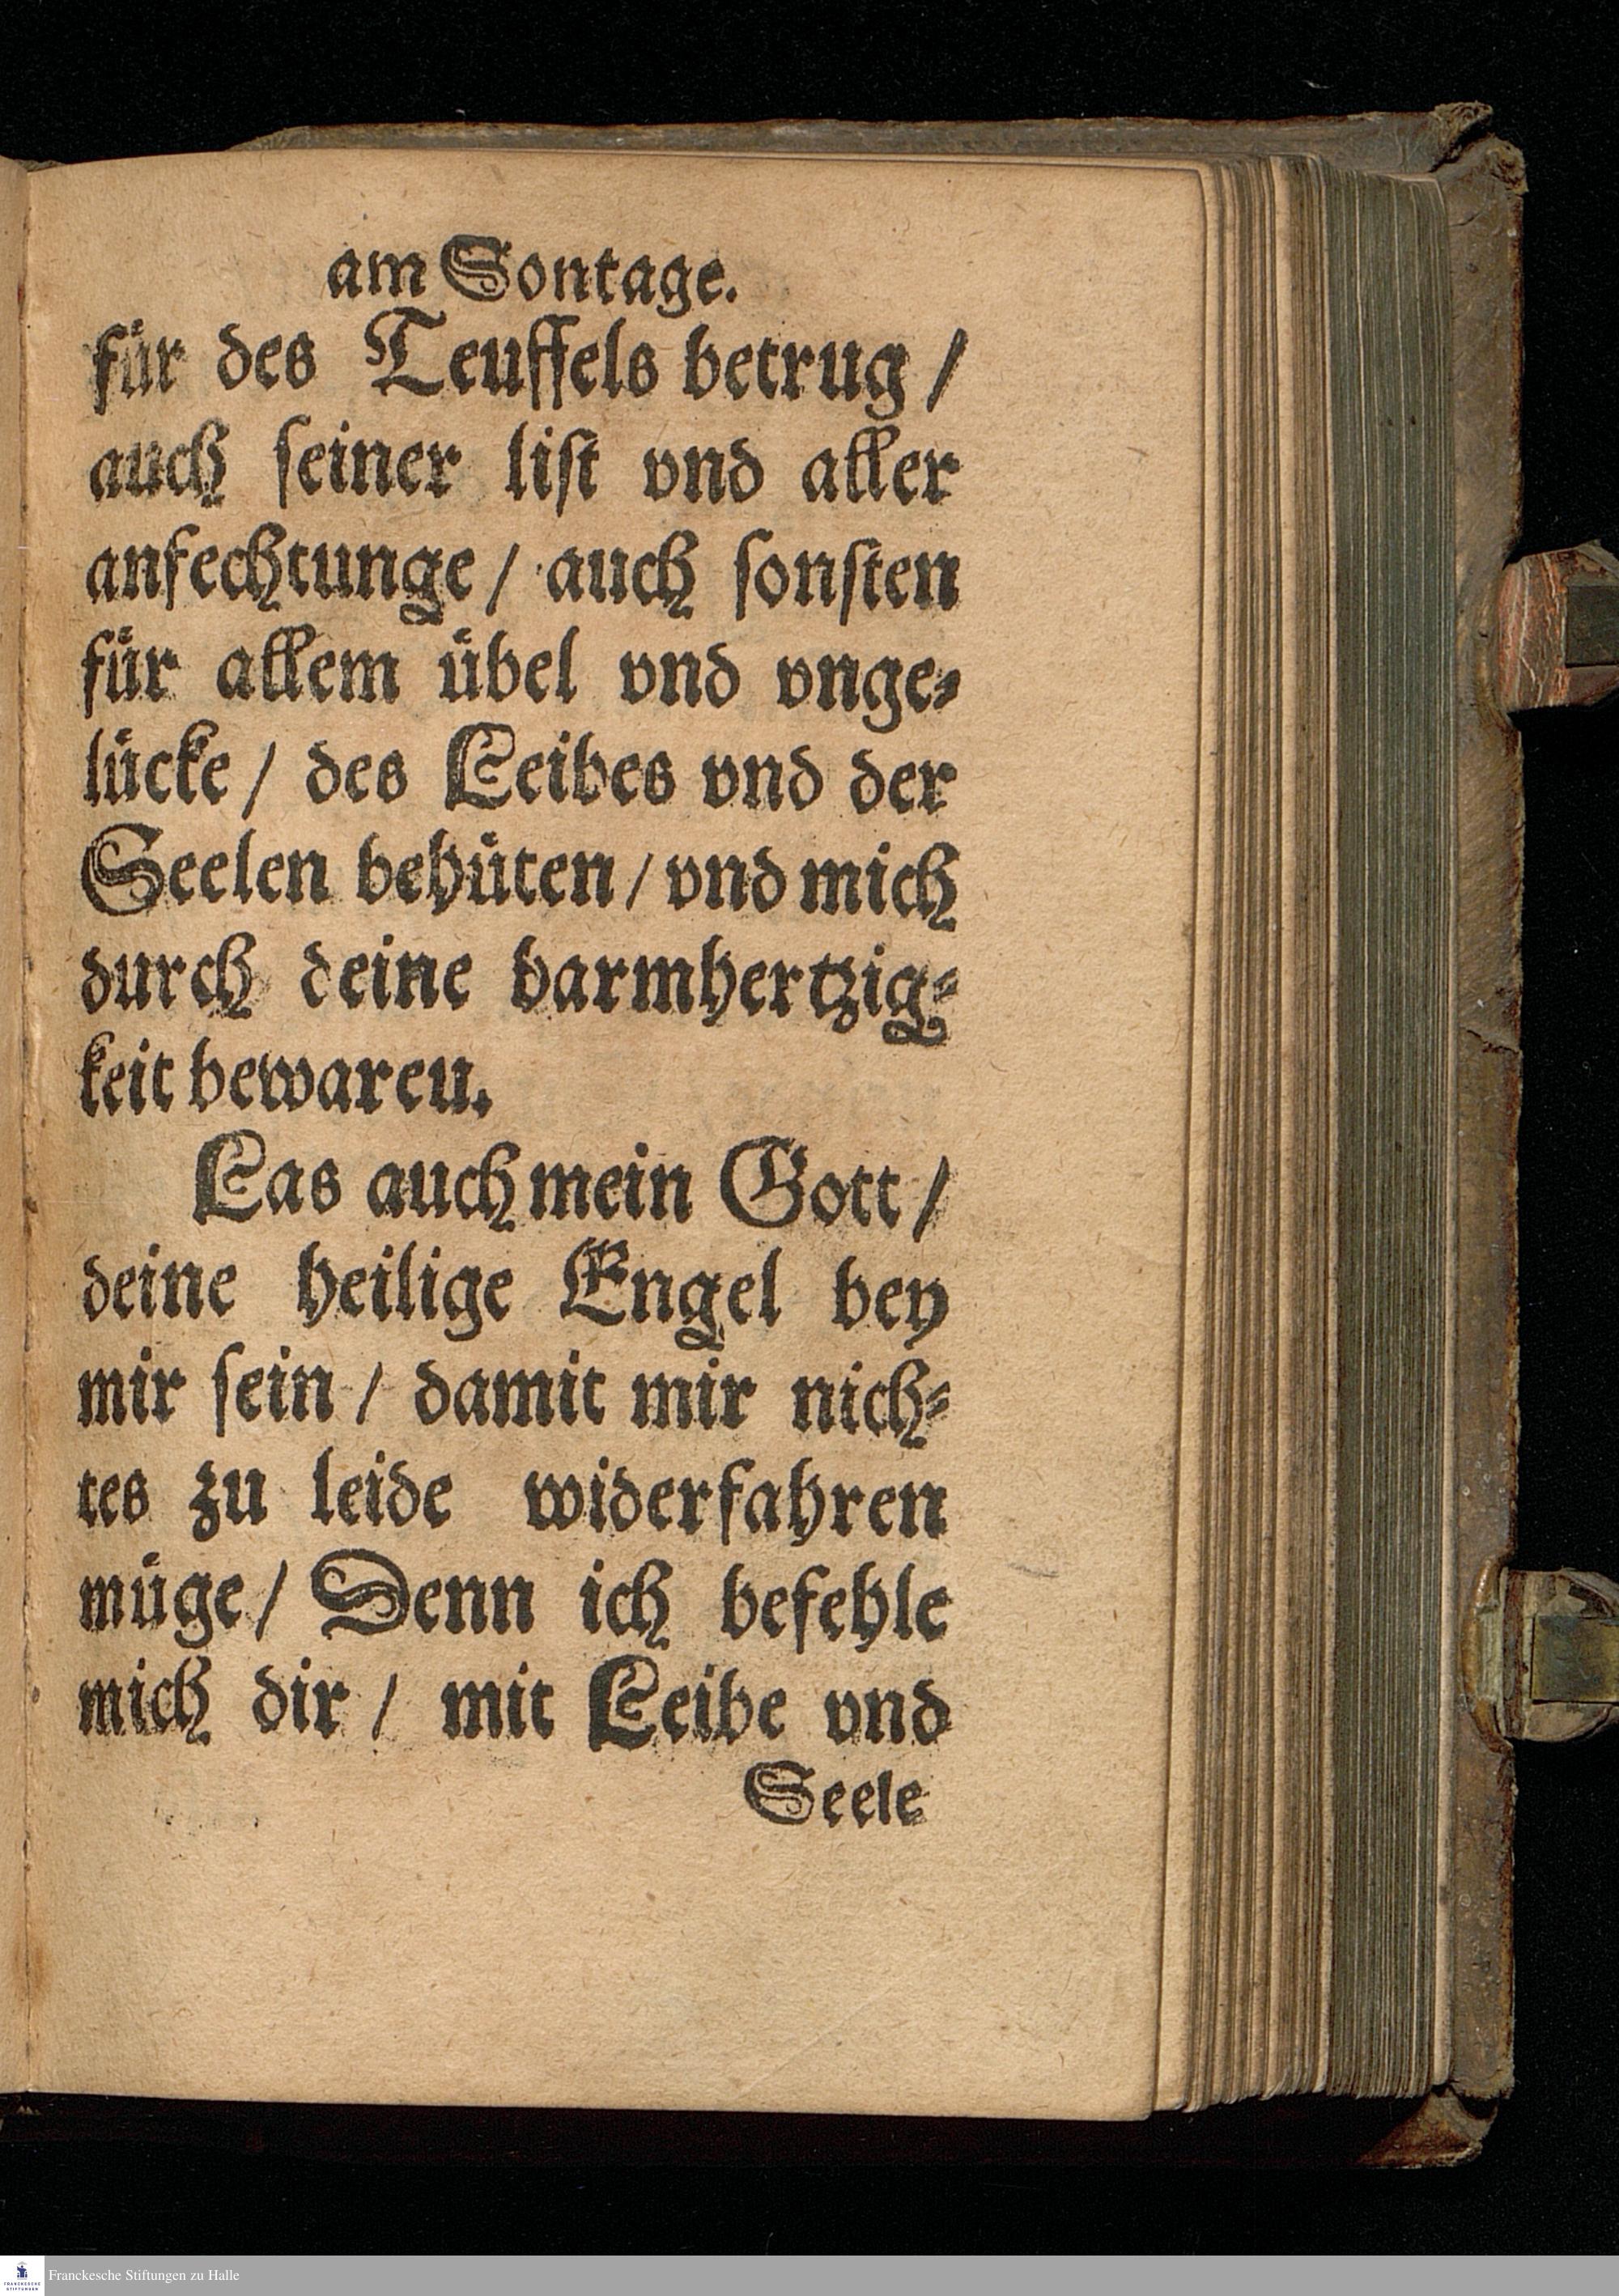 am Sontage.
für des Teuffels betrug /
auch seiner list vnd aller
anfechtunge / auch sonsten
für allem übel vnd vnge-
lücke / des Leibes vnd der
Seelen behüten / vnd mich
durch deine barmhertzig-
keit bewareu.
Las auch mein Gott /
deine heilige Engel bey
mir sein / damit mir nich-
tes zu leide widerfahren
müge / Denn ich befehle
mich dir / mit Leibe vnd
Seele
FRANCKESCHE
STIFTUNGEN
Franckesche Stiftungen zu Halle